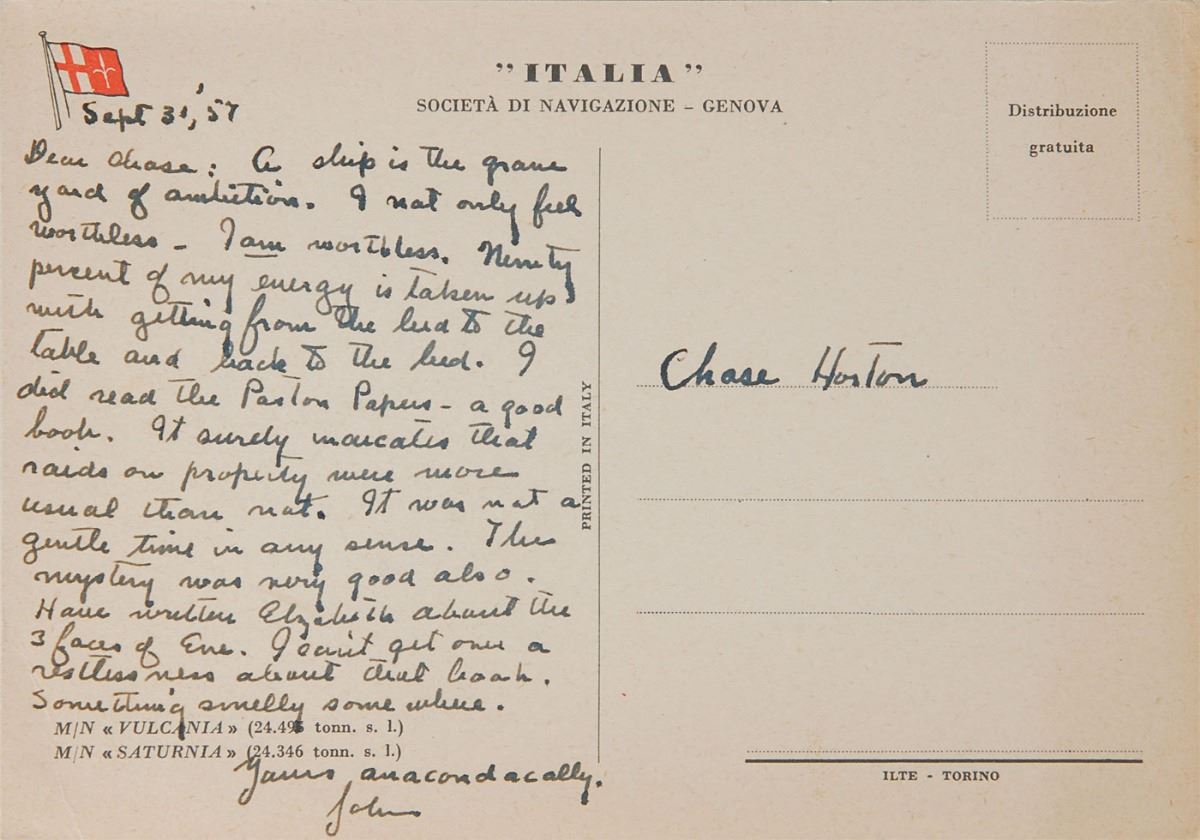 " ITALIA "
SOCIETÀ DI NAVIGAZIONE – GENOVA
Distribuzione
gratuita
Sept 31, '57
Dear Chase: A ship is the grave
yard of ambition. I not only feel
worthless – I am worthless. Ninety
percent of my energy is taken up
with getting from the bed to the
table and back to the bed. I
did read the Paston Papers – a good
book. It surely indicates that
raids on property were more
usual than not. It was not a
gentle time in any sense. The
mystery was very good also.
Have written Elizabeth about the
3 faces of Eve. I can't get over a
restlessness about that book.
Something smelly some where.
M/N « VULCANIA » (24.496 tonn. s. l.)
M/N « SATURNIA » (24.346 tonn. s. l.)
Yours anacondacally.
John
PRINTED IN ITALY
Chase Horton
ILTE - TORINO